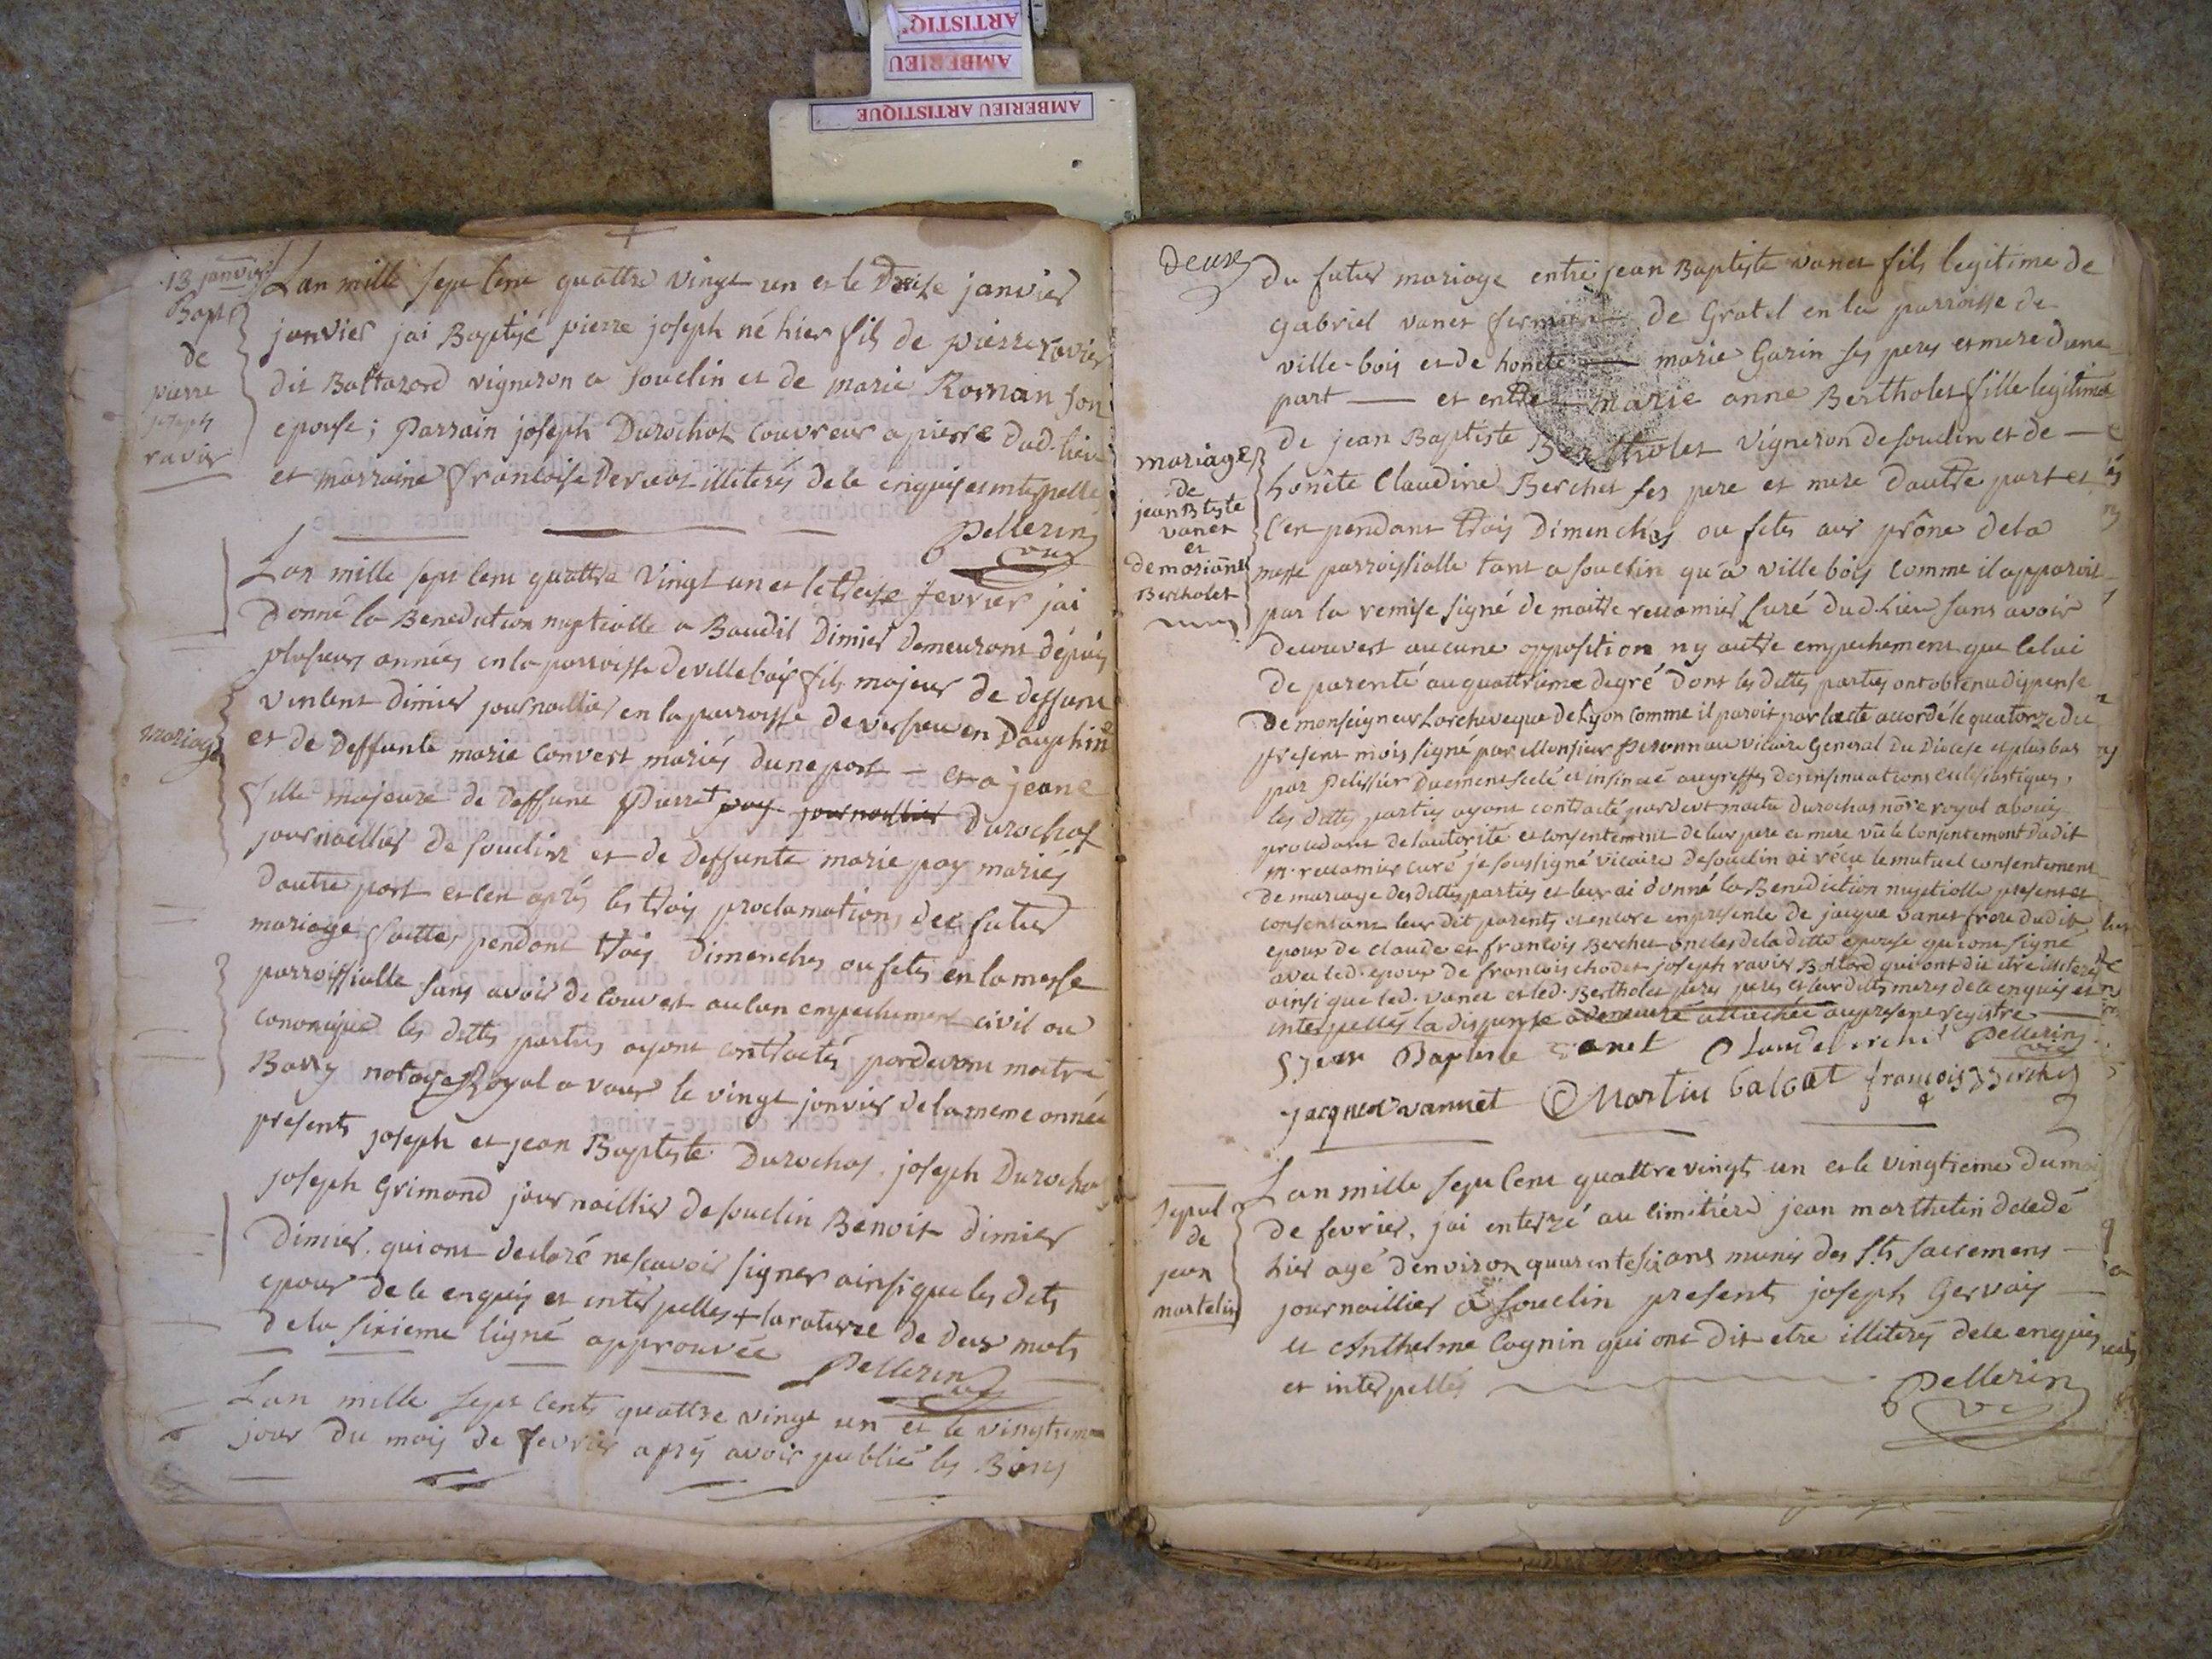 ARTISTIQ
AMBERIEU
AMBERIEU ARTISTIQUE
13 janvier
Bapt
de
pierre
joseph
ravier
Lan mille sept cent quattre vingt un et le Treise janvier
janvier jai Baptisé pierre joseph né hier fils de pierre ravier
dit Baltazard vigneron a souclin et de marie Roman son
epouse; Parrain joseph Durochat Couvreur a pierre dud. lieu
et marraine francoise illiterés de ce enquis et interpellés
Pellerin
vic
Lan mille sept cent quattre vingt un et le treise fevrier jai
Donné la Benediction nuptialle a Baudil Dimier demeurant dépuis
plusieurs années en la parroisse de villebois fils majeur de deffunt
vincent dimier journaillier en la parroisse de versieu en Dauphiné
mariage
et de Deffunte marie Convert mariés dune part — et a jeane
fille majeure de deffunt Pierre poy journaillier Durochat
journaillier de souclin et de Deffunte marie poy mariés
dautre part et cen aprés les trois proclamations dee futur
mariage faittes pendant trois Dimenches ou fetes en la messe
parroissialle sans avoir decouvert aucun empechement civil ou
canonique les dittes parties ayant contractés pardevant maitre
Barry notaire Royal a vaux le vingt janvier de la meme année
presents joseph et jean Baptiste Durochat joseph Durochat
joseph Grimand journaillier de souclin Benoit dimier
Dimier qui ont declaré ne scavoir signer ainsi que les dits
epoux de ce enquis et interpelles + la rature de deux mots
de la sixieme ligne approuvée Pellerin
vic
Lan mille sept cents quattre vingt un et le vingtieme
jour du mois de fevrier aprés avoir publié les Bans
Deux
du futur mariage entre jean Baptiste vanet fils legitime de
gabriel vanet fermier de Gratel en la parroisse de
ville-bois et de honete — marie Garin ses peres et mere dune
part — et entre — marie anne Bertholet fille legitime
de jean Baptiste Bertholet vigneron de souclin et de —
mariage
de
jean Btiste
vanet
et
de marianne
Bertholet
honête Claudine Berchet ses pere et mere dautre part et
cen pendant trois Dimenches ou fetes aux prône de la
messe parroissialle tant a souclin qu'a ville bois comme il apparoit
par la remise signé de maitre recamier curé dud. lieu sans avoir
decouvert aucune opposition ny autre empechement que celui
de parenté au quattrieme degré Dont les dittes parties ont obtenu dispense
de monseigneur Larcheveque de Lyon comme il paroit par lacte accordé le quatorze du
present mois signé par Monsieur vicaire General du Diocese et plus bas
par Pelissier Duement scelé et insinué au greffes des insinuations eclesiastiques,
les dittes parties ayant contracté pardevt maitre durochat nore royal
procedant de lautorité et consentement de leur pere et mere vû le consentement dudit
mr. recamier curé je soussigné vicaire de souclin ai récu le mutuel consentement
de mariage des dittes parties et leur ai donné la Benediction nuptialle present et
consentant leur dit parents et encore en presence de jacque vanet frere dudit
epoux de claude et francois Berchet oncles de la ditte epouse qui ont signé
avec led. epoux de francois chodet joseph ravier qui ont dit etre illiterés
ainsi que led. vanet et led. Bertholet peres et leur dits meres de ce enquis et
interpellés la dispense attachée au present registre
jean Baptiste vanet Pellerin
vic
jacque vannet Martin françois Berchet
Sepul
de
jean
martelin
Lan mille sept cent quattre vingts un et le vingtieme du moi
de fevrier, jai enterré au cimitiére jean marthelin décédé
hier agé denviron quarente six ans munis des sts sacremens —
journaillier a souclin presents joseph Gervais —
et Anthelme Cognin qui ont dit etre illiterés de ce enquis
et interpellés
Pellerin
vic